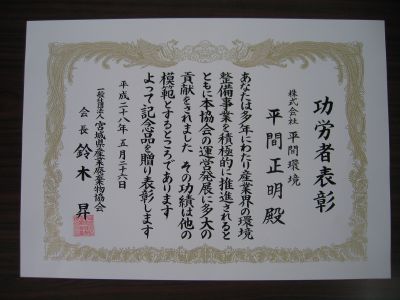 功労者表彰
株式会社 平間環境
平間正明殿
あなたは多年にわたり産業界の環境
整備事業を積極的に推進されると
ともに本協会の運営発展に多大の
貢献をされました その功績は他の
模範とするところであります
よって記念品を贈り表彰します
平成二十八年五月二十六日
一般社団法人 宮城県産業廃棄物協会
会長 鈴木 昇